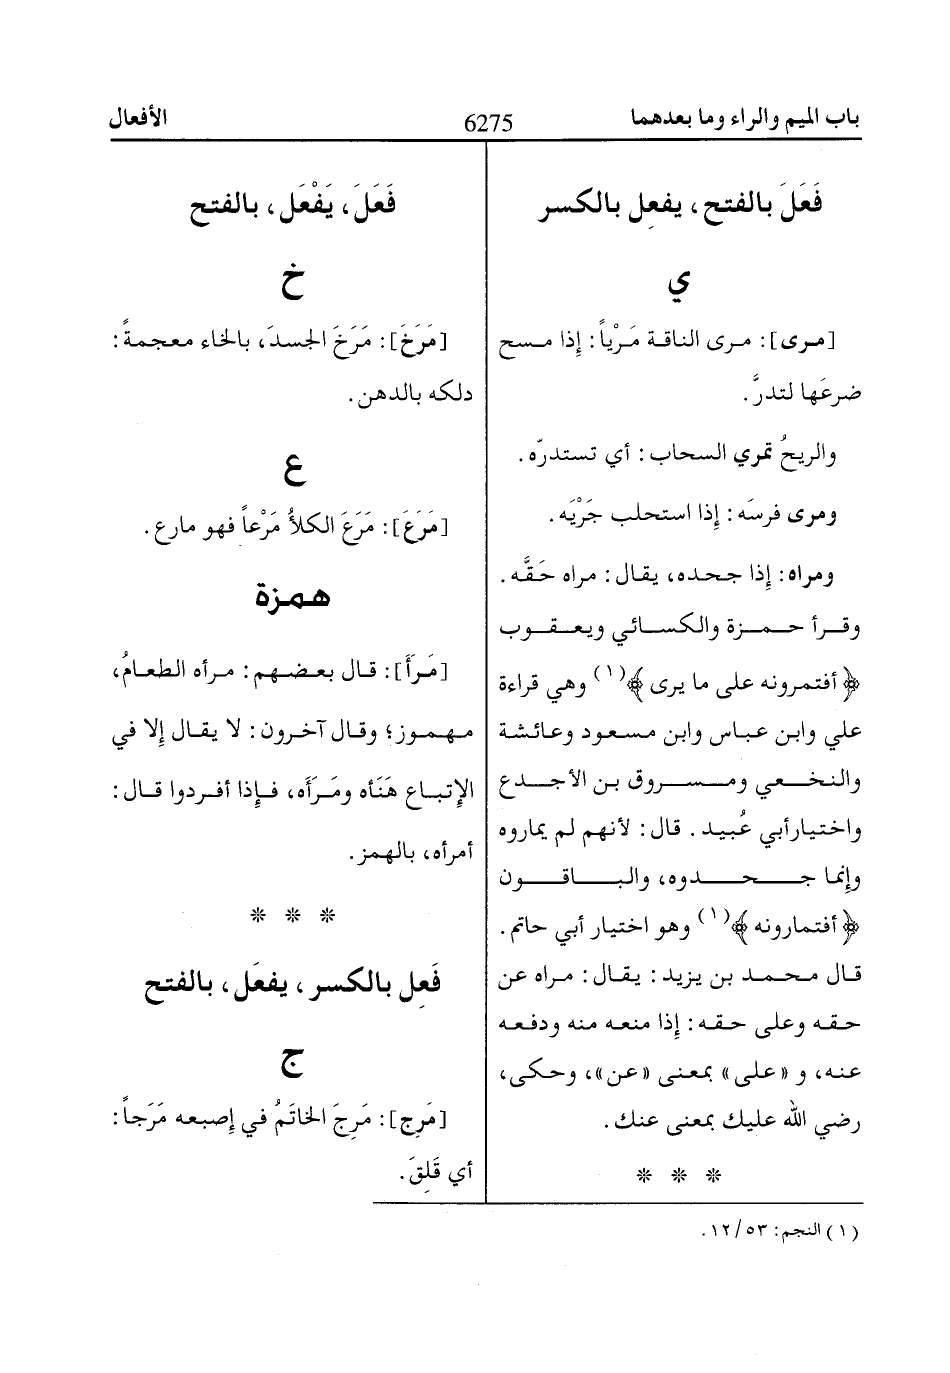 باب الميم والراء وما بعدهما
6275
الأفعال
فَعَلَ بالفتح، يفعِل بالكسر
ي
[مرى]: مرى الناقة مَرْياً: إِذا مسح
ضرعَها لتدرَّ.
والريحُ تمري السحاب: أي تستدرّه.
ومرى فرسَه: إِذا استحلب جَرْيَه.
ومراه: إِذا جحده، يقال: مراه حَقَّه.
وقرأ حمزة والكسائي ويعقوب
﴿أفتمرونه على ما يرى﴾(١) وهي قراءة
علي وابن عباس وابن مسعود وعائشة
والنخعي ومسروق بن الأجدع
واختيارأبي عُبيد. قال: لأنهم لم يماروه
وإِنما جحدوه، والباقون
﴿أفتمارونه﴾(١) وهو اختيار أبي حاتم.
قال محمد بن يزيد: يقال: مراه عن
حقه وعلى حقه: إِذا منعه منه ودفعه
عنه، و «على» بمعنى «عن»، وحكى،
رضي الله عليك بمعنى عنك.
* * *
فَعَلَ، يَفْعَل، بالفتح
خ
[مَرَخَ]: مَرَخَ الجسدَ، بالخاء معجمةً:
دلكه بالدهن.
ع
[مَرَعَ]: مَرَعَ الكلأُ مَرْعاً فهو مارع.
همزة
[مَرَأَ]: قال بعضهم: مرأه الطعامُ،
مهموز؛ وقال آخرون: لا يقال إِلا في
الإِتباع هَنَأه ومَرَأه، فإِذا أفردوا قال:
أمرأه، بالهمز.
* * *
فَعِل بالكسر، يفعَل، بالفتح
ج
[مَرِج]: مَرِجَ الخاتَمُ في إِصبعه مَرَجاً:
أي قَلِقَ.
(١) النجم: ٥٣/ ١٢.